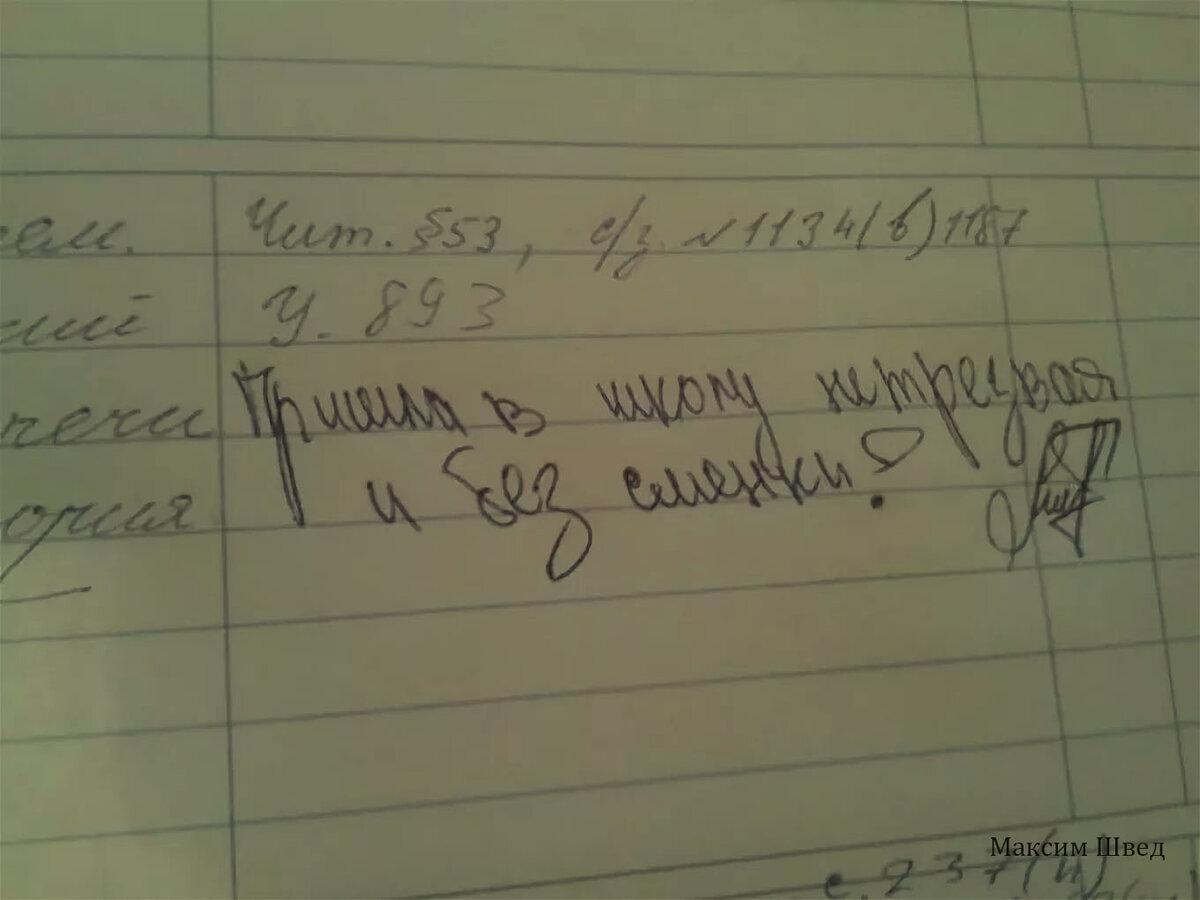 Чит. §53, с/з. №1134(в)1187
У. 893
Пришла в школу нетрезвая
и без сменки!
Максим Швед
с. 237(и)